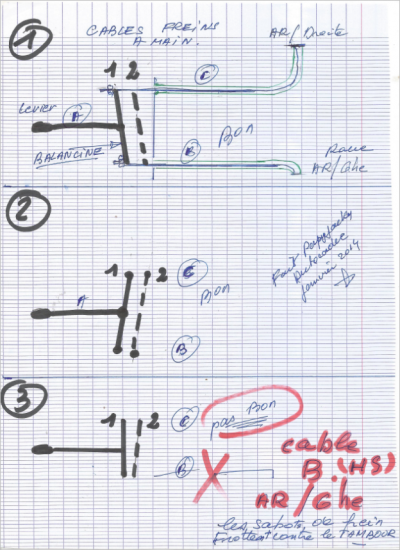 1
CABLES FREINS
A MAIN.
AR/Droite
1 2
C
Levier
A
Bon
BALANCINE
B
Roue
AR/Ghe
2
1 2
C
A
Bon
B
Fait Papyjacky
janvier 2014
3
1 2
C
pas Bon
B
cable
B. (HS)
AR/Ghe
les sabots de frein
frottent contre le TAMBOUR